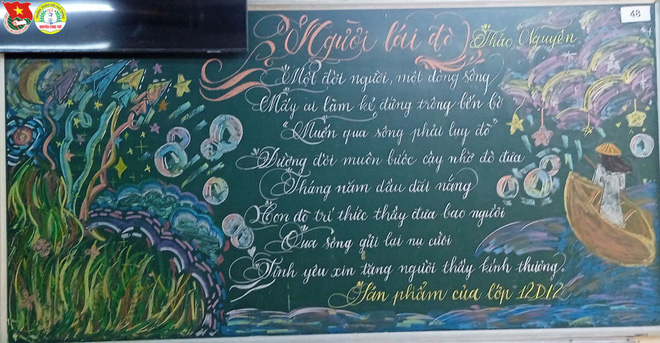 48
Người lái đò
Thảo Nguyên
Một đời người, một dòng sông
Mấy ai làm kẻ đứng trông bến bờ
"Muốn qua sông phải luỵ đò"
Đường đời muôn bước cậy nhờ đò đưa
Tháng năm dầu dãi nắng
Con đò trí thức thầy đưa bao người
Qua sông gửi lại nụ cười
Tình yêu xin tặng người thầy kính thương.
Sản phẩm của lớp 12D12